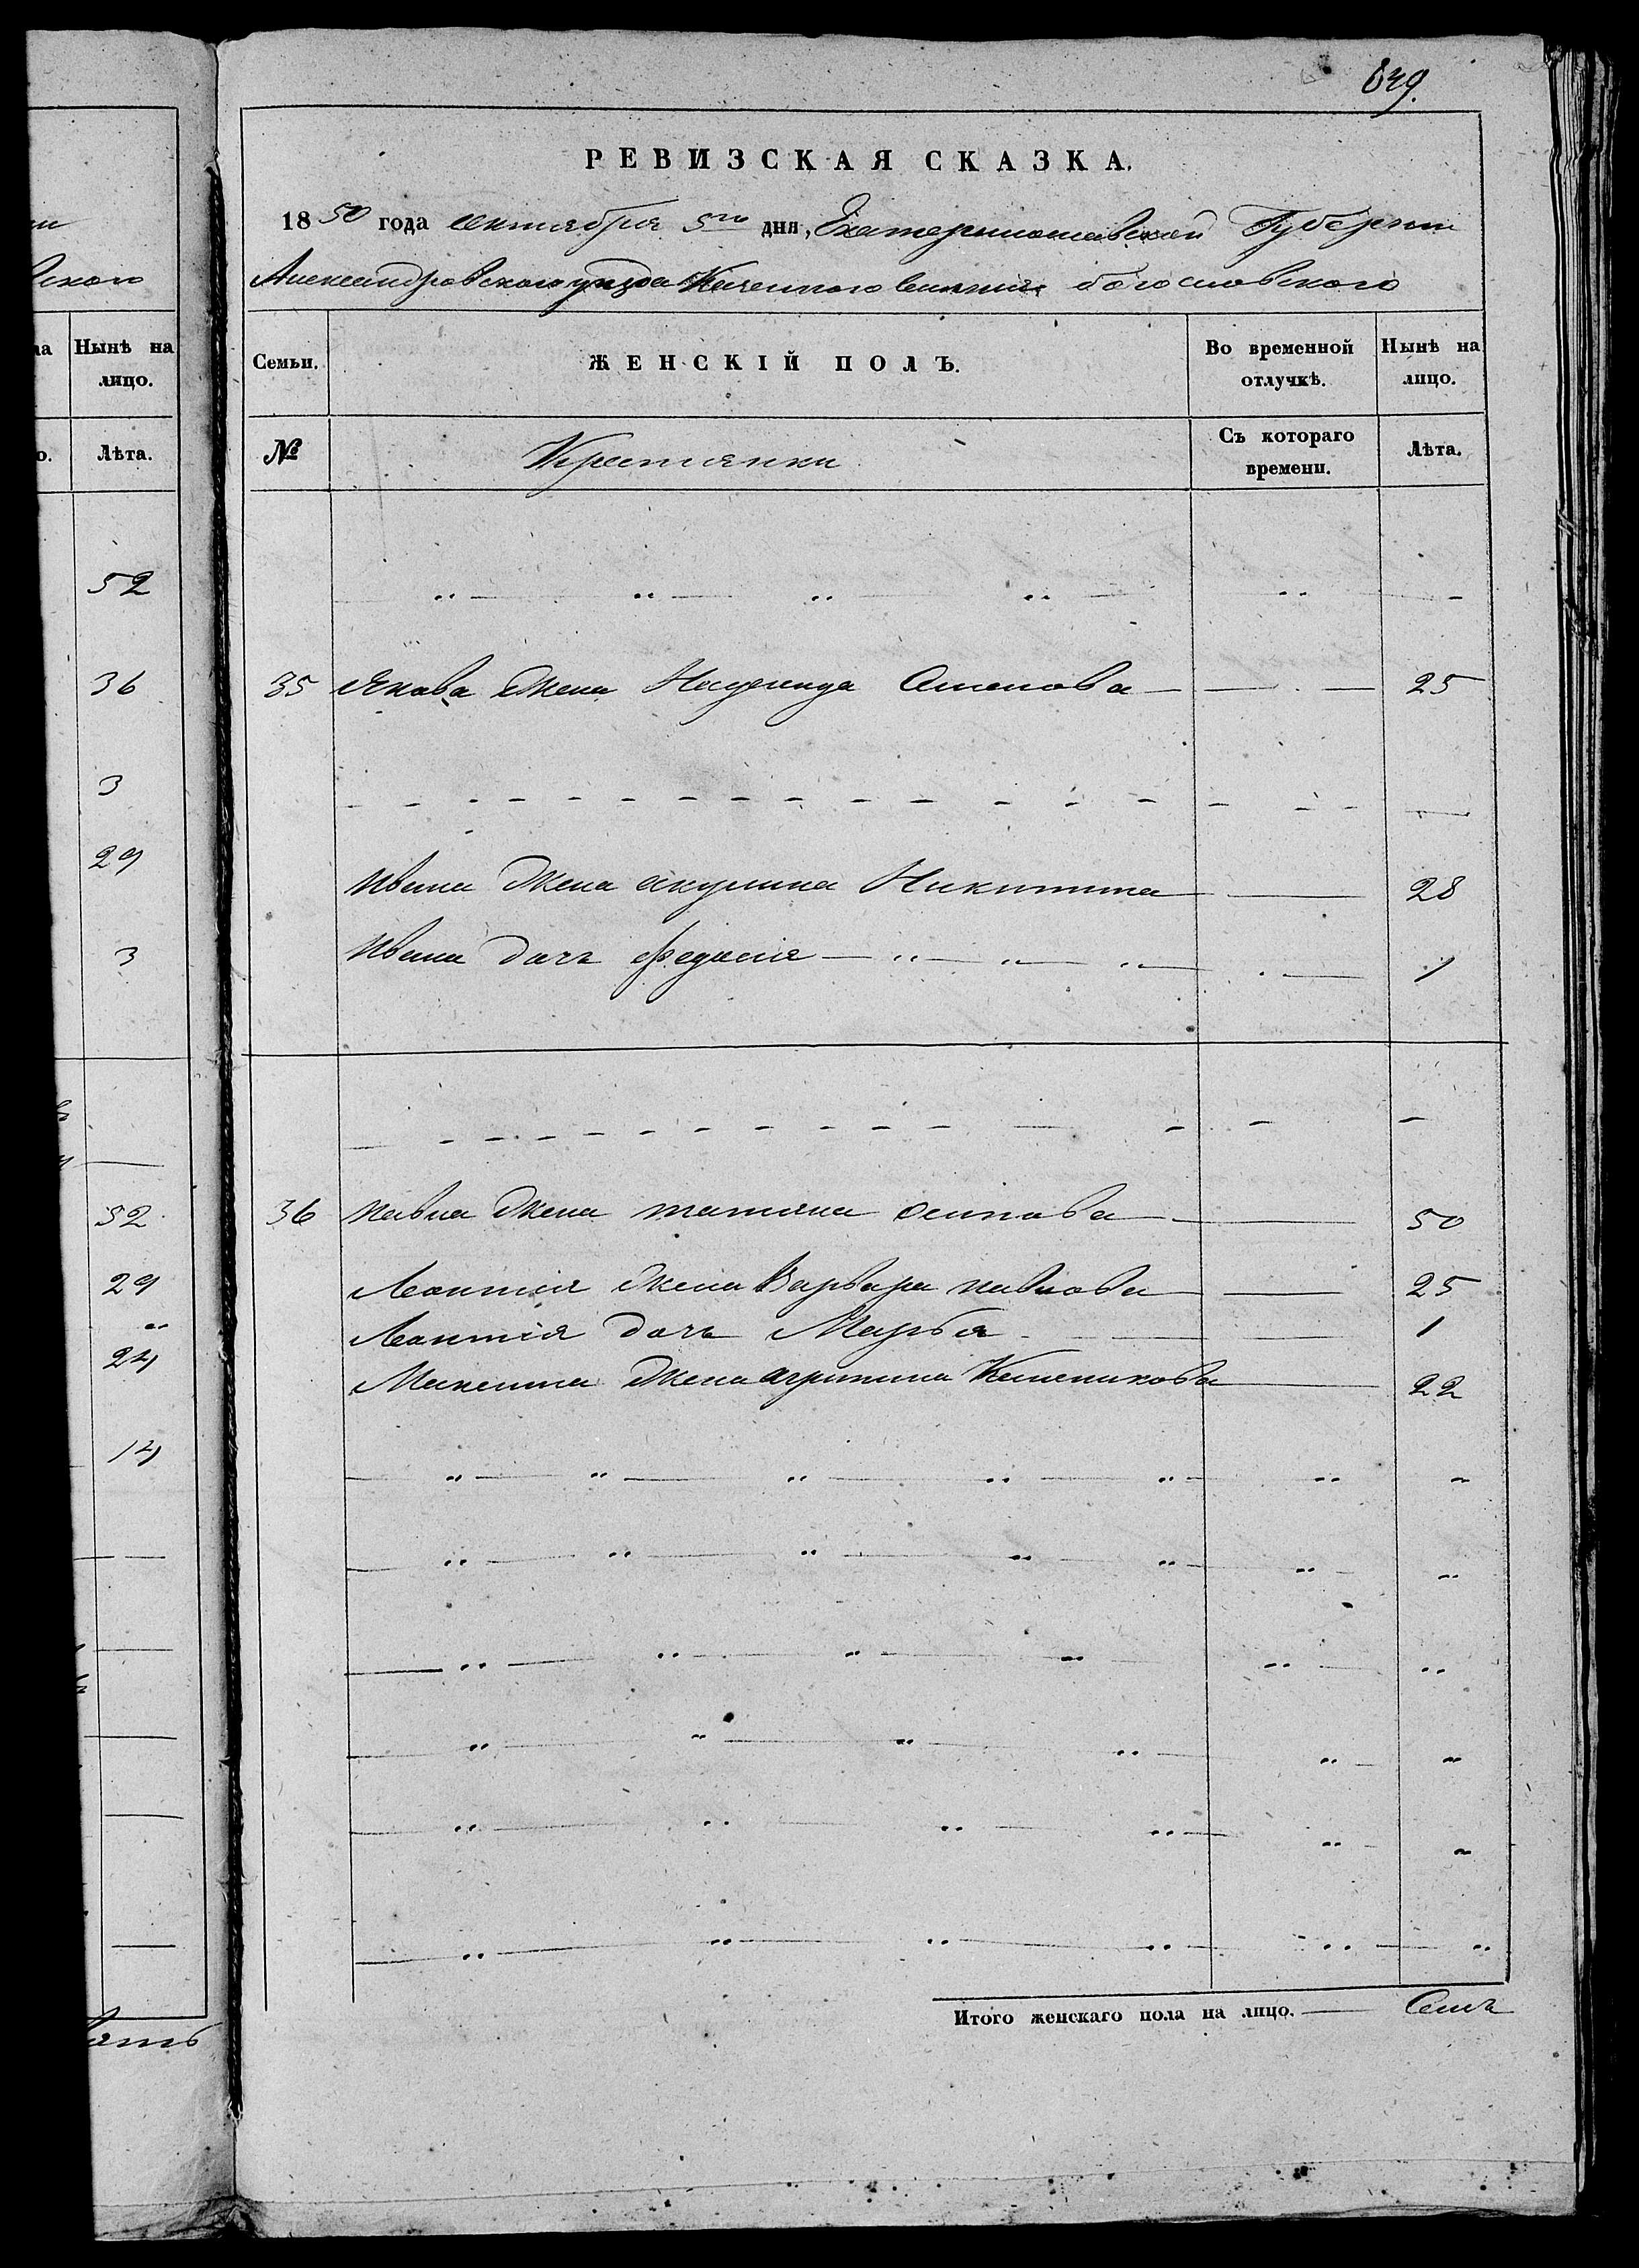 649.
РЕВИЗСКАЯ СКАЗКА.
1850 года сентября 5го дня, Екатеринославской Губерніи
Александровского уезда Казенного селенія богословского
ского
на Нынѣ на лицо.
Семьи. ЖЕНСКІЙ ПОЛЪ. Во временной отлучкѣ. Нынѣ на лицо.
о. Лѣта.
№ Крестянки Съ котораго времени. Лѣта.
52
36
35 Якова жена Надежда Семенова 25
3
29
Ивана жена акулина Никитина 28
3
Ивана дочь федосія 1
52
36 павла жена татяна осипова 50
29
Леонтія жена Варвара павлова 25
Леонтія дочь Марья 1
24
жена агрипина 22
14
Итого женскаго пола на лицо. Семь